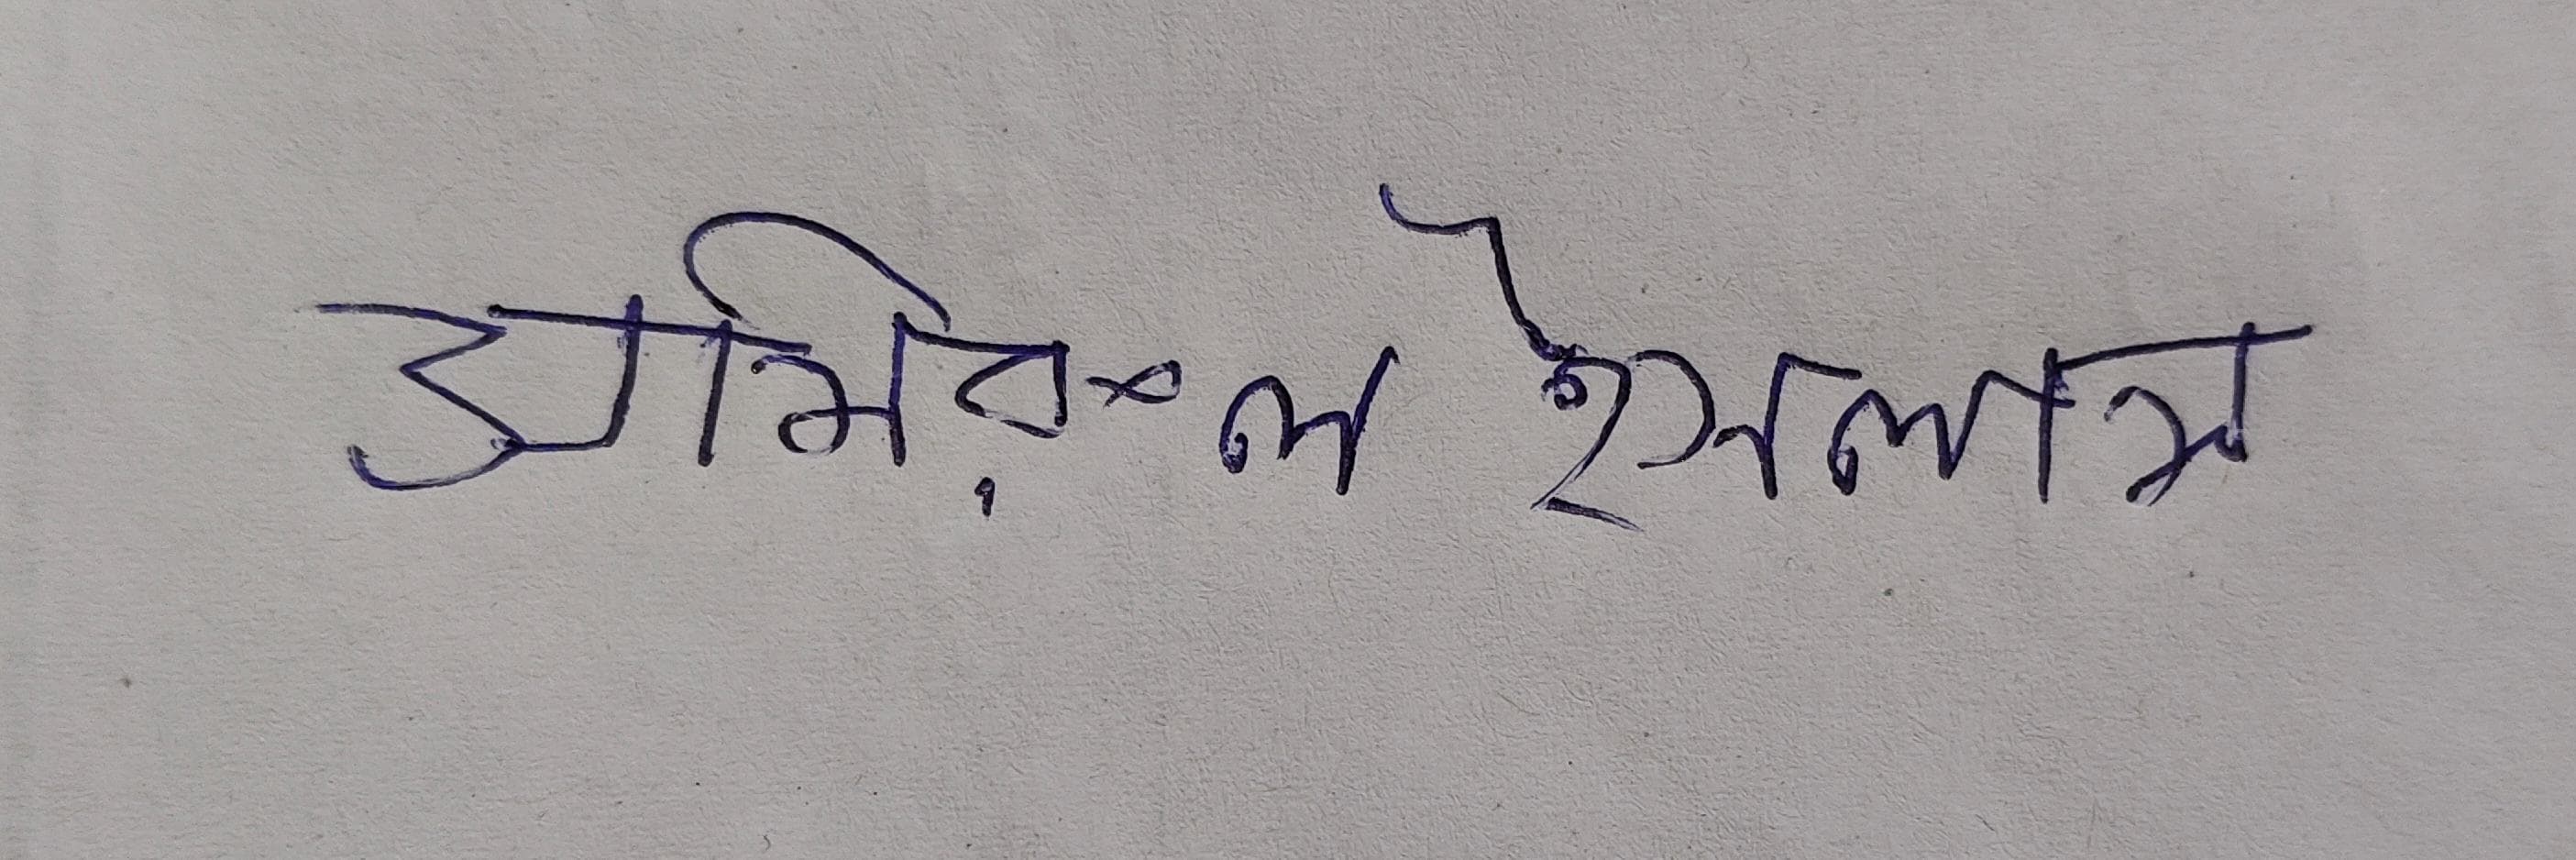 আমিরুল ইসলাম